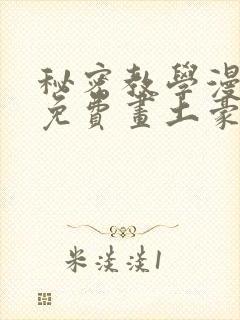 秘密教學漫
免費畫土豪
米淡淡1